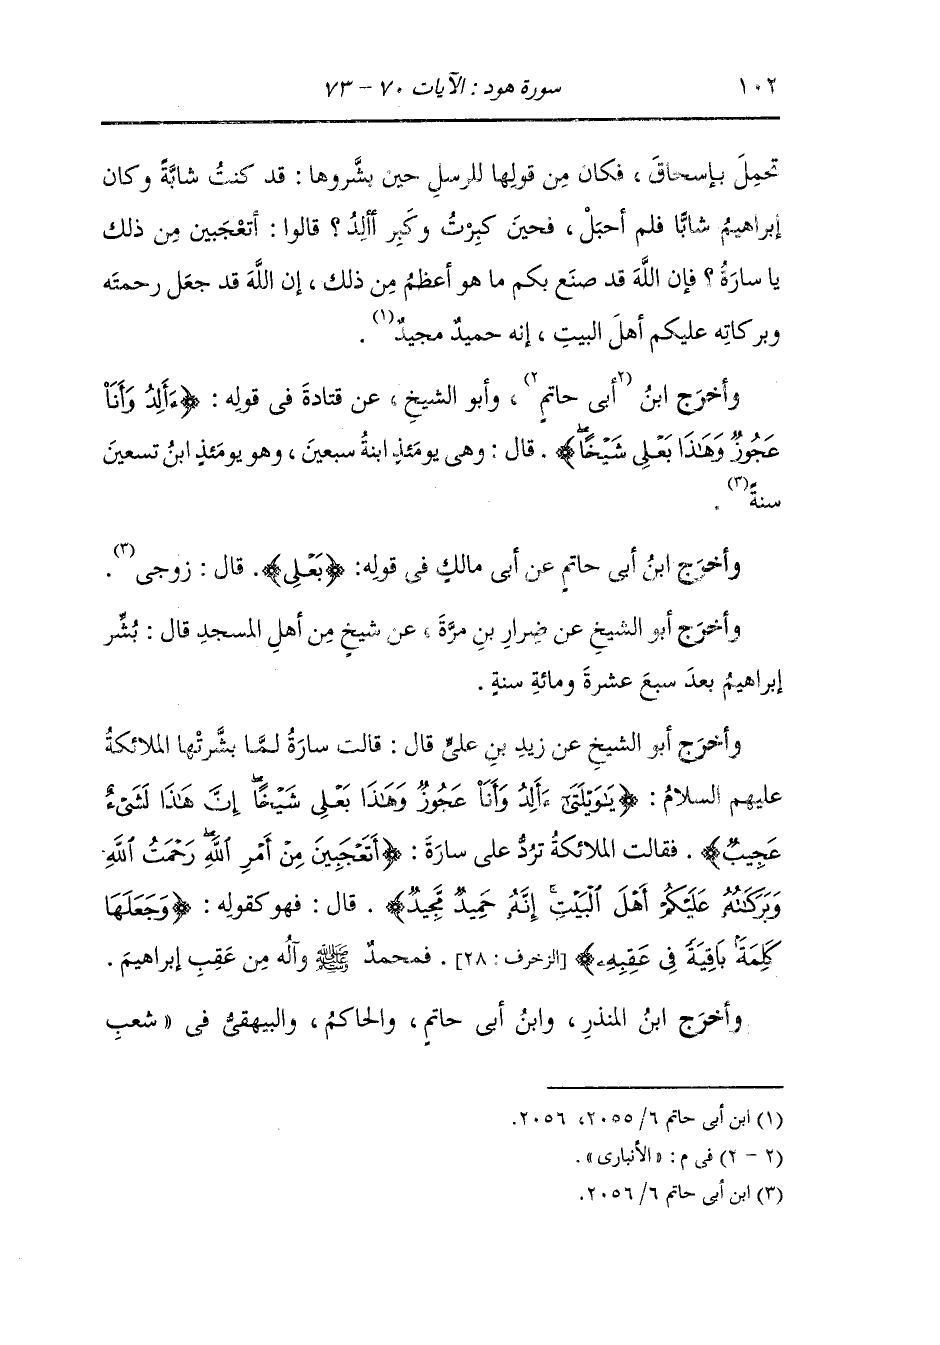 ١٠٢ سورة هود : الآيات ٧٠ - ٧٣
تحمِلَ بإسحاقَ ، فكان مِن قولِها للرسلِ حين بشَّروها : قد كنتُ شابَّةً وكان
إبراهيمُ شابًّا فلم أحبَلْ ، فحينَ كبِرْتُ وكَبِر أألِدُ ؟ قالوا : أتعْجَبين مِن ذلك
يا سارَةُ ؟ فإن اللَّهَ قد صنَع بكم ما هو أعظمُ مِن ذلك ، إن اللَّهَ قد جعَل رحمتَه
وبركاتِه عليكم أهلَ البيتِ ، إنه حميدٌ مجيدٌ(١) .
وأخرَج ابنُ (٢أبى حاتمٍ٢) ، وأبو الشيخِ ، عن قتادةَ فى قولِه : ﴿ءَأَلِدُ وَأَنَا۠
عَجُوزٌ وَهَٰذَا بَعْلِى شَيْخًاۖ﴾ . قال : وهى يومَئذٍ ابنةُ سبعينَ ، وهو يومَئذٍ ابنُ تسعينَ
سنةً(٣) .
وأخرَج ابنُ أبى حاتمٍ عن أبى مالكٍ فى قولِه: ﴿بَعْلِى﴾. قال : زوجى(٣) .
وأخرَج أبو الشيخِ عن ضِرارِ بنِ مرَّةَ ، عن شيخٍ مِن أهلِ المسجدِ قال : بُشِّر
إبراهيمُ بعدَ سبعَ عشرةَ ومائةِ سنةٍ .
وأخرَج أبو الشيخِ عن زيدِ بنِ علىٍّ قال : قالت سارَةُ لـمَّا بشَّرتْها الملائكةُ
عليهم السلامُ : ﴿يَٰوَيْلَتَىٰٓ ءَأَلِدُ وَأَنَا۠ عَجُوزٌ وَهَٰذَا بَعْلِى شَيْخًاۖ إِنَّ هَٰذَا لَشَىْءٌ
عَجِيبٌ﴾ . فقالت الملائكةُ تردُّ على سارَةَ : ﴿أَتَعْجَبِينَ مِنْ أَمْرِ ٱللَّهِۖ رَحْمَتُ ٱللَّهِ
وَبَرَكَٰتُهُۥ عَلَيْكُمْ أَهْلَ ٱلْبَيْتِۚ إِنَّهُۥ حَمِيدٌ مَّجِيدٌ﴾ . قال : فهو كقولِه : ﴿وَجَعَلَهَا
كَلِمَةًۢ بَاقِيَةً فِى عَقِبِهِۦ﴾ [الزخرف : ٢٨] . فمحمدٌ ﷺ وآلُه مِن عَقِبِ إبراهيمَ .
وأخرَج ابنُ المنذرِ ، وابنُ أبى حاتمٍ ، والحاكمُ ، والبيهقىُّ فى « شعبِ
(١) ابن أبى حاتم ٦/ ٢٠٥٥، ٢٠٥٦.
(٢ - ٢) فى م : « الأنبارى » .
(٣) ابن أبى حاتم ٦/ ٢٠٥٦.